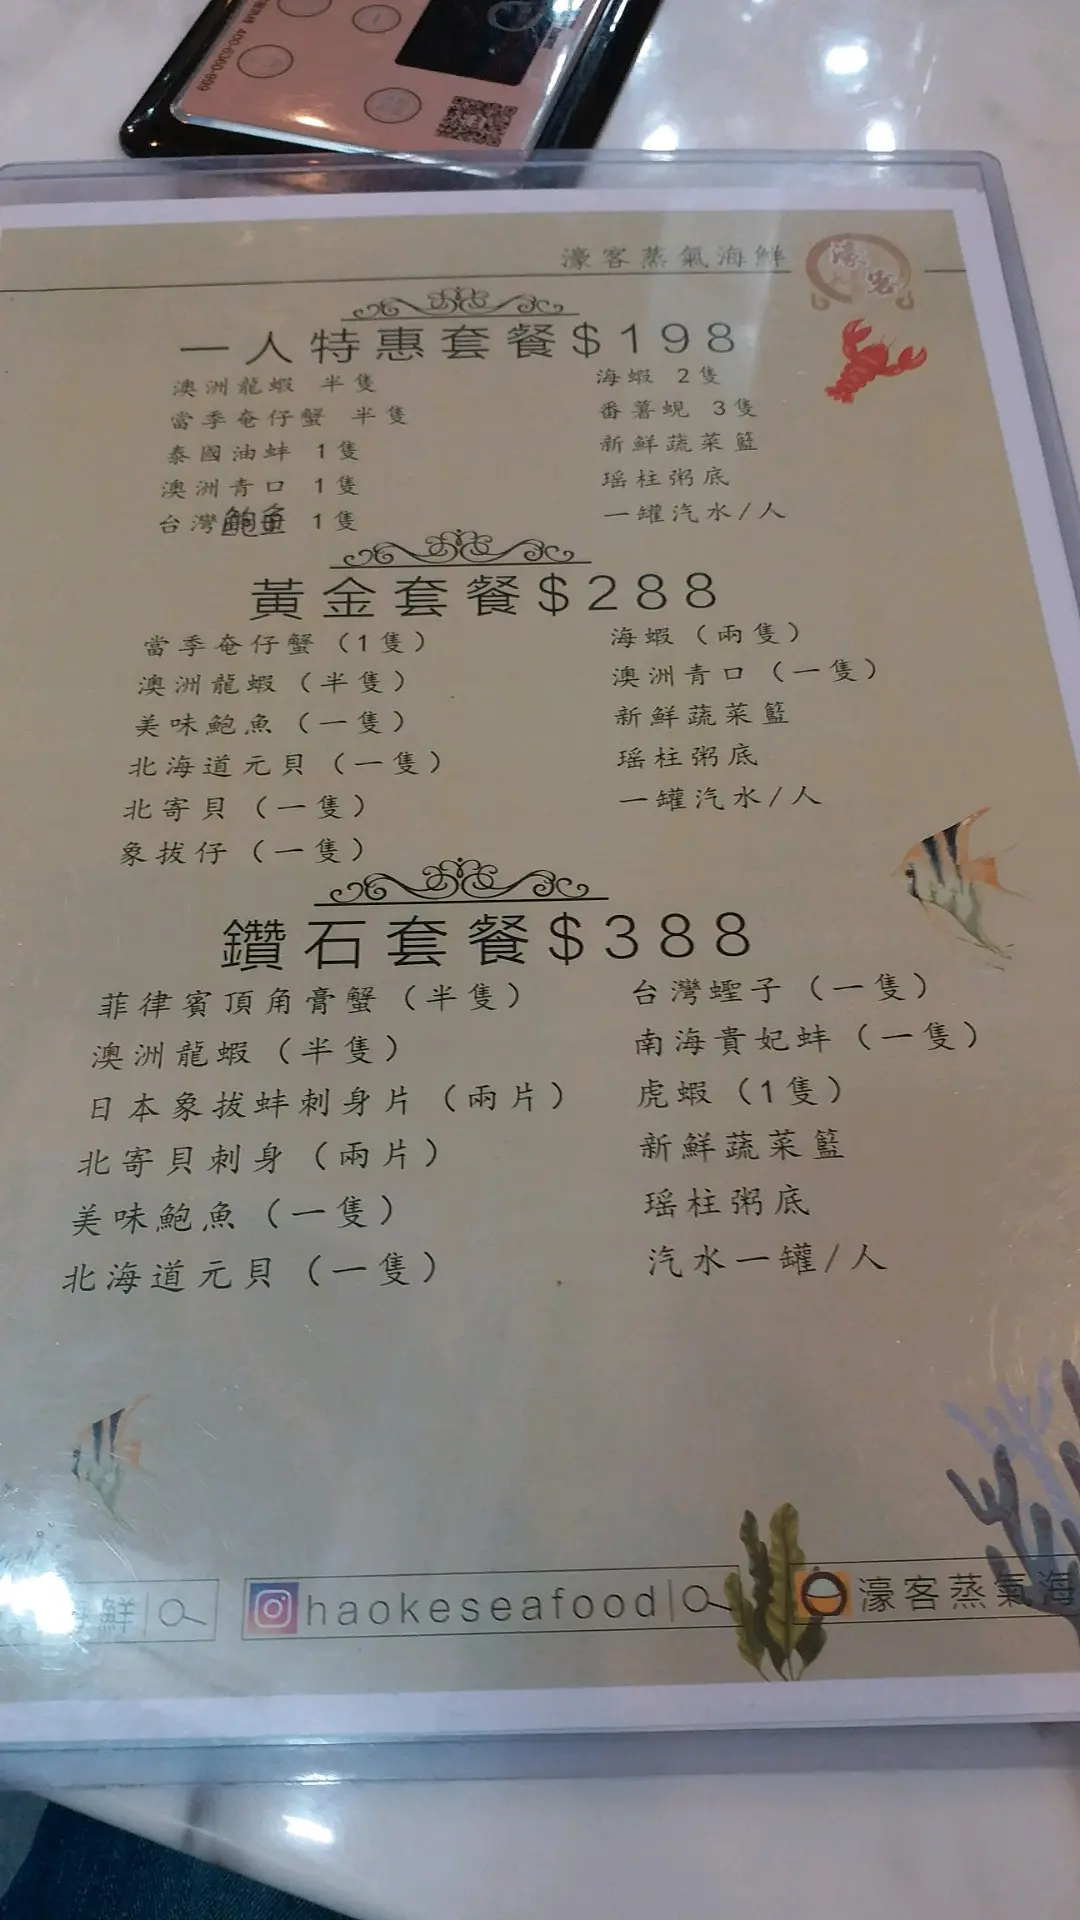 400-6360-999
濠客蒸氣海鮮
濠客
一人特惠套餐$198
澳洲龍蝦 半隻
當季奄仔蟹 半隻
泰國油蚌 1隻
澳洲青口 1隻
台灣鮑魚 1隻
海蝦 2隻
番薯蜆 3隻
新鮮蔬菜籃
瑶柱粥底
一罐汽水/人
黃金套餐$288
當季奄仔蟹（1隻）
澳洲龍蝦（半隻）
美味鮑魚（一隻）
北海道元貝（一隻）
北寄貝（一隻）
象拔仔（一隻）
海蝦（兩隻）
澳洲青口（一隻）
新鮮蔬菜籃
瑶柱粥底
一罐汽水/人
鑽石套餐$388
菲律賓頂角膏蟹（半隻）
澳洲龍蝦（半隻）
日本象拔蚌刺身片（兩片）
北寄貝刺身（兩片）
美味鮑魚（一隻）
北海道元貝（一隻）
台灣蟶子（一隻）
南海貴妃蚌（一隻）
虎蝦（1隻）
新鮮蔬菜籃
瑶柱粥底
汽水一罐/人
海鮮
haokeseafood
濠客蒸氣海